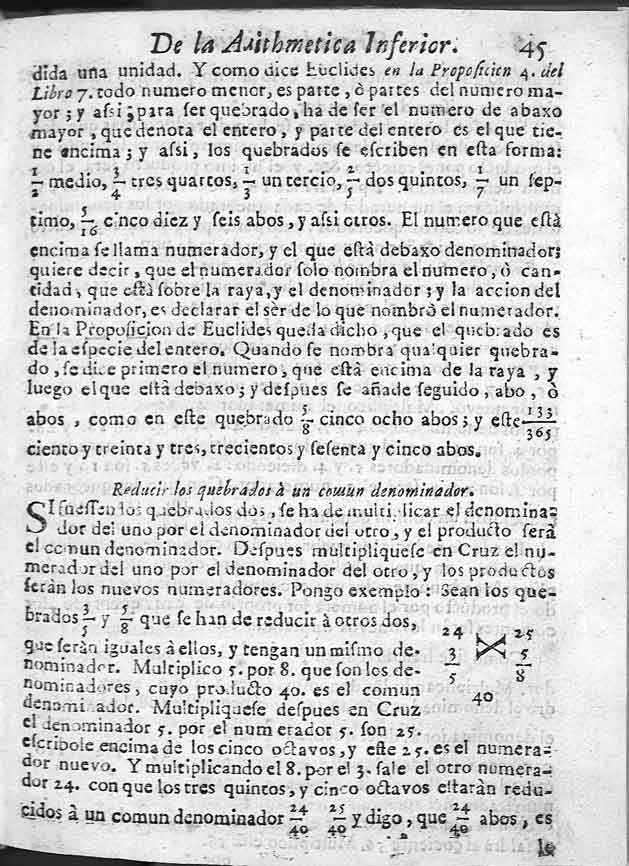 De la Arithmetica Inferior. 45
dida una unidad. Y como dice Euclides en la Proposicion 4. del
Libro 7. todo numero menor, es parte, ò partes del numero ma-
yor; y assi, para ser quebrado, ha de ser el numero de abaxo
mayor, que denota el entero, y parte del entero es el que tie-
ne encima; y assi, los quebrados se escriben en esta forma:
1/2 medio, 3/4 tres quartos, 1/3 un tercio, 2/5 dos quintos, 1/7 un sep-
timo, 5/16 cinco diez y seis abos, y assi otros. El numero que està
encima se llama numerador, y el que està debaxo denominador;
quiere decir, que el numerador solo nombra el numero, ò can-
tidad, que està sobre la raya, y el denominador; y la accion del
denominador, es declarar el sèr de lo que nombrò el numerador.
En la Proposicion de Euclides queda dicho, que el quebrado es
de la especie del entero. Quando se nombra qualquier quebra-
do, se dice primero el numero, que està encima de la raya, y
luego el que està debaxo; y despues se añade seguido, abo, ò
abos, como en este quebrado 5/8 cinco ocho abos; y este 133/365
ciento y treinta y tres, trecientos y sesenta y cinco abos.
Reducir los quebrados à un comun denominador.
SI fuessen los quebrados dos, se ha de multiplicar el denomina-
dor del uno por el denominador del otro, y el producto serà
el comun denominador. Despues multipliquese en Cruz el nu-
merador del uno por el denominador del otro, y los productos
seràn los nuevos numeradores. Pongo exemplo: Sean los que-
brados 3/5 y 5/8 que se han de reducir à otros dos,
que seràn iguales à ellos, y tengan un mismo de-
nominador. Multiplico 5. por 8. que son los de-
nominadores, cuyo producto 40. es el comun
denominador. Multipliquese despues en Cruz
el denominador 5. por el numerador 5. son 25.
escribole encima de los cinco octavos, y este 25. es el numera-
dor nuevo. Y multiplicando el 8. por el 3. sale el otro numera-
dor 24. con que los tres quintos, y cinco octavos estaràn redu-
cidos à un comun denominador 24/40 25/40 y digo, que 24/40 abos, es
24 25
3/5 5/8
40
lo